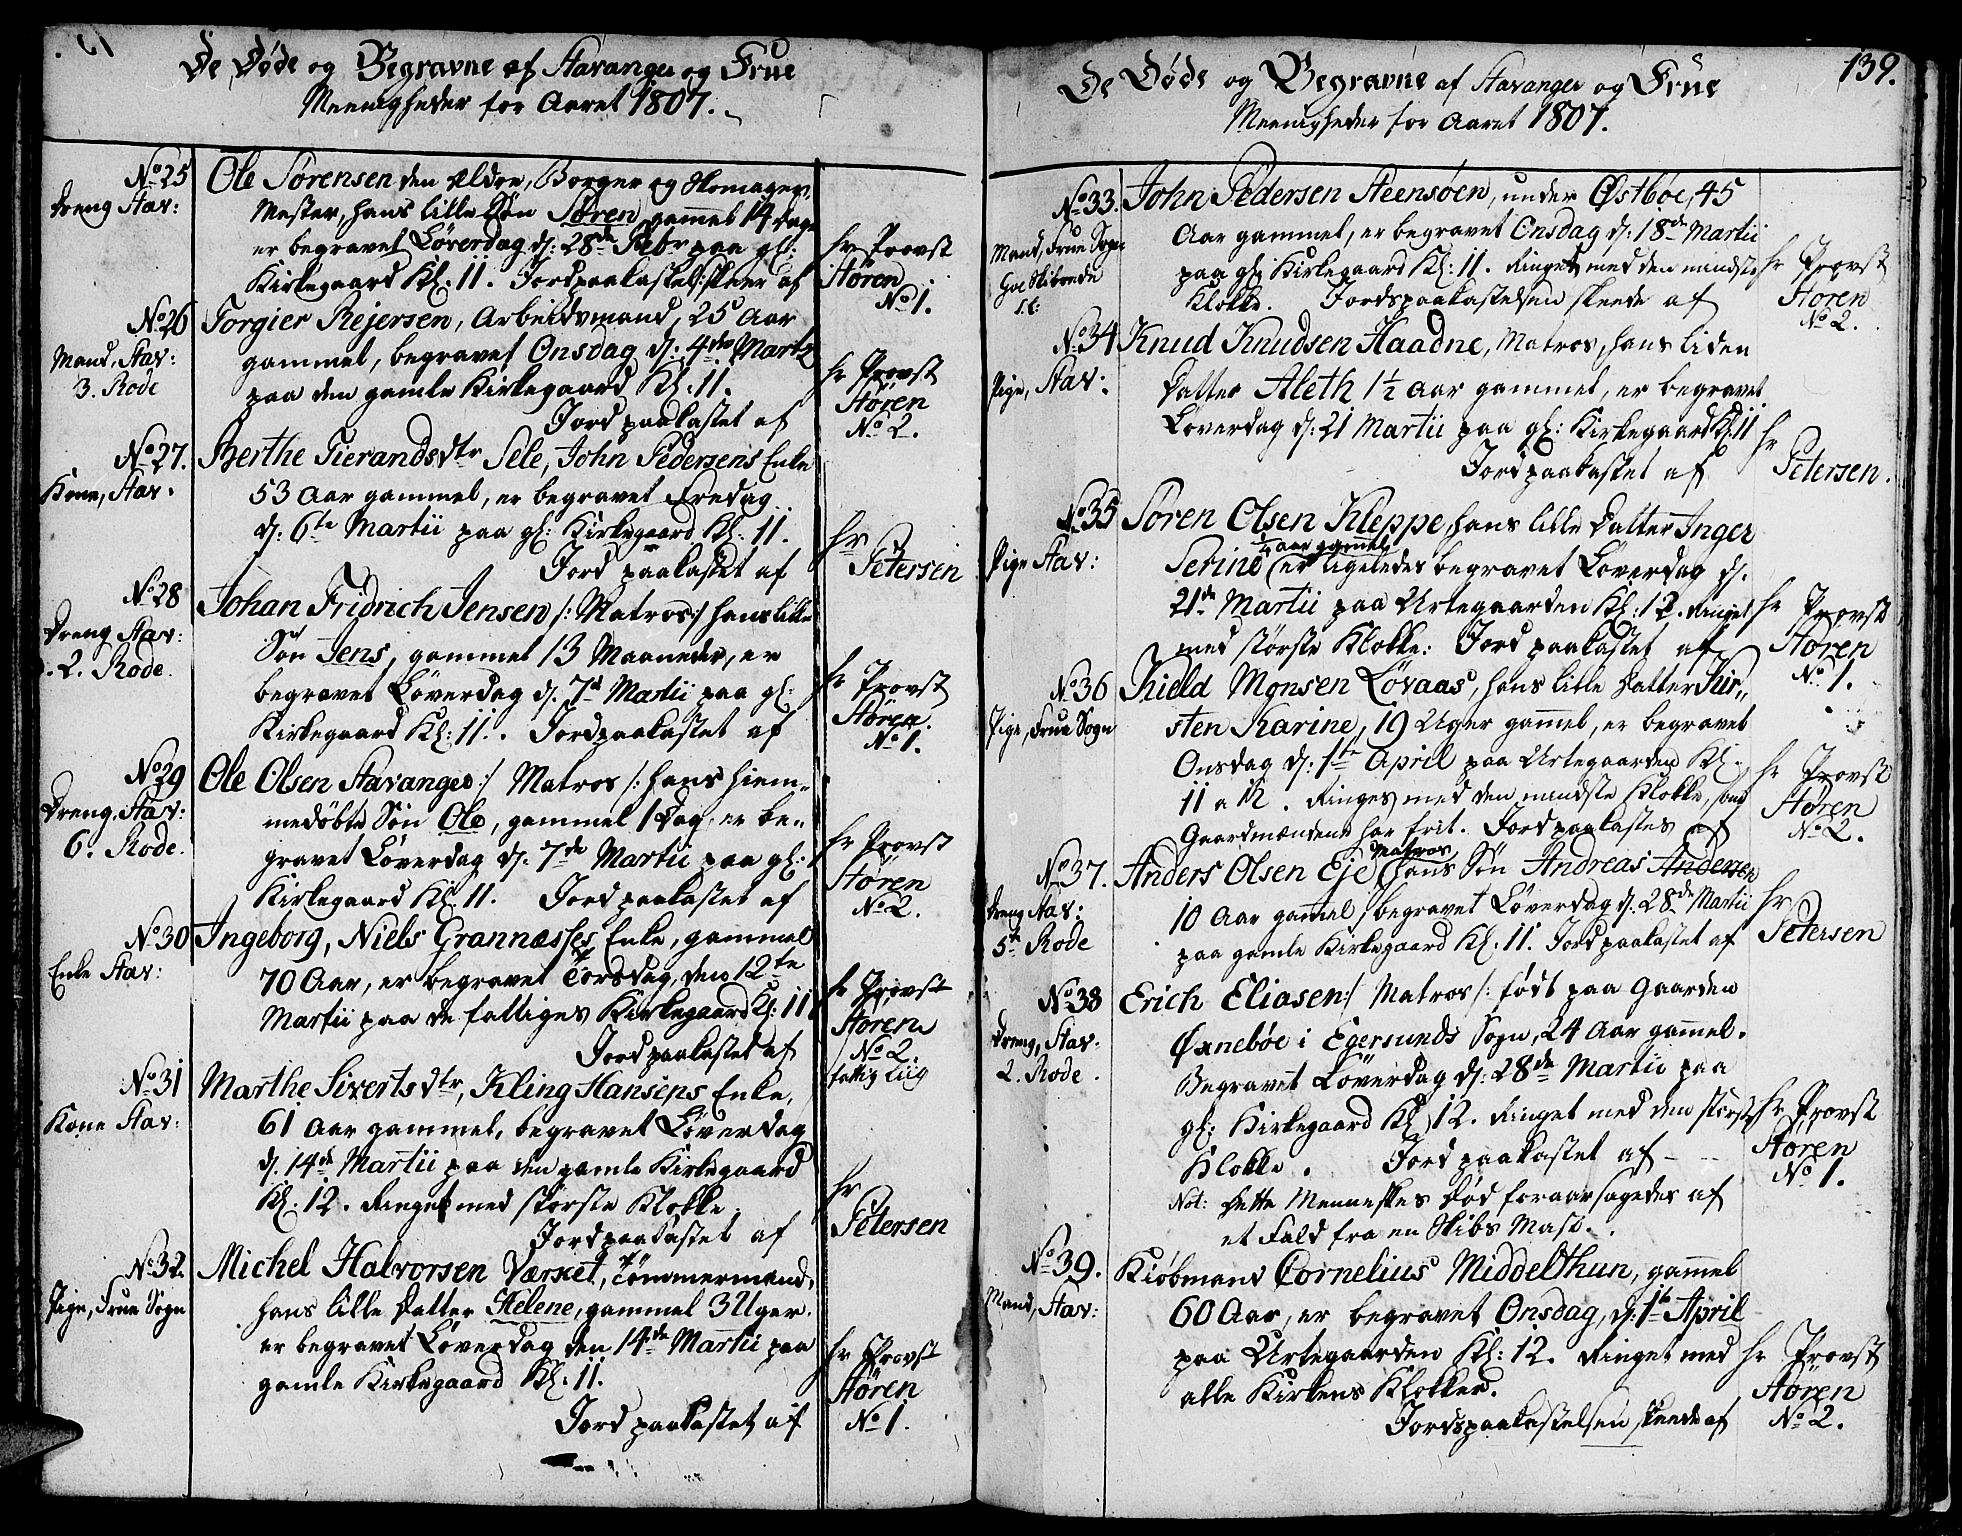 De Døde og Begravne af Stavanger og Frue
Meenigheder for Aaret 1807.
No 25
Dreng Stav:
Ole Sørensen den Eldre, Borger og Skomager
Mester, hans lille Søn Søren gammel 14 Dage
er begravet Løverdag d: 28de Febr paa gl:
Kirkegaard Kl. 11. Jordpaakastels: skeer af
hr Provst
Støren
No 1.
No 26
Mand, Stav:
3. Rode
Torgier Rejersen, Arbeidsmand, 25 Aar
gammel, begravet Onsdag d: 4de Martz
paa den gamle Kirkegaard Kl. 11.
Jord paakastet af
hr Provst
Støren
No 2.
No 27.
Kone, Stav.
Berthe Tierandsdtr Sele, John Pedersens Enke
53 Aar gammel, er begravet Fredag
d: 6te Martii paa gl: Kirkegaard Kl. 11.
Jord paakastet af
hr
Petersen
No 28
Dreng Stav:
2. Rode.
Johan Fridrich Jensen /: Matros :/ hans lille
Søn Jens, gammel 13 Maaneder, er
begravet Løverdag d. 7d Martii paa gl:
Kirkegaard Kl: 11. Jordpaakastet af
hr Provst
Støren.
No 1.
No 29
Dreng, Stav:
6. Rode.
Ole Olsen Stavanger :/ Matros /: hans hiem-
medøbte Søn Ole, gammel 1 Dag, er be-
gravet Løverdag d: 7de Martii paa gl:
Kirkegaard Kl. 11. Jord paakastet af
hr Provst
Støren
No 2.
No 30
Enke Stav:
Ingeborg, Niels Grannæsses Enke, gammel
70 Aar, er begravet Torsdag, den 12te
Martii paa de fattiges Kirkegaard Kl: 11
Jord paakastet af
hr Provst
Støren
No 2.
fattig Liig
No 31
Kone Stav:
Marthe Sivertsdtr, Kling Hansens Enke,
61 Aar gammel, begravet Løverdag
d. 14de Martii paa den gamle Kirkegaard
Kl. 12. Ringet med største Klokke.
Jordpaakastet af
hr
Petersen
No 32.
Pige, Frue Sogn
Michel Halvorsen Værket, Tømmermand,
hans lille Datter Helene, gammel 3 Uger.
er begravet Løverdag den 14de Martii paa
gamle Kirkegaard Kl. 11.
Jord paakastet af
hr Provst
Støren
No 1.
139.
De Døde og Begravne af Stavanger og Frue
Meenigheder for Aaret 1807.
No 33.
Mand, Frue Sogn
John Pedersen Steensøen, under Østbøe, 45
Aar gammel, er begravet Onsdag d: 18de Martii
paa gl: Kirkegaard Kl: 11. Ringet med den mindste
Klokke. Jordspaakastelsen skeede af
hr Provst
Støren
No 2.
No 34
Pige, Stav:
Knud Knudsen Haadne, Matros, hans liden
Datter Aleth 1½ Aar gammel, er begravet
Løverdag d: 21 Martii paa gl: Kirkegaard Kl. 11
Jordpaakastet af
hr
Petersen.
No 35
Pige Stav:
Søren Olsen Kleppe, hans lille Datter Inger
¼ aar gammel
Serine (er ligeledes begravet Løverdag d.
21de Martii paa Urtegaarden Kl: 12. Ringet
med største Klokke: Jord paakastet af
hr Provst
Støren
No 1.
No 36
Pige, Frue Sogn
Kield Monsen Løvaas, hans lille Datter Kir-
sten Karine, 19 Uger gammel, er begravet
Onsdag d: 1te April paa Urtegaarden Kl.
11 a 12. Ringes med den mindste Klokke, som
Gaardmændene har frit. Jord paakastes af
hr Provst
Støren
No 2.
No 37.
Dreng Stav:
5te Rode
Matros
Anders Olsen Eje (hans Søn Andreas Andersen
10 Aar gammel, begravet Løverdag d. 28de Martii
paa gamle Kirkegaard Kl. 11. Jord paakastet af
hr
Petersen
No 38
Dreng, Stav:
2. Rode.
Erich Eliasen :/ Matros /: født paa Gaarden
Øxnebøe i Egersunds Sogn, 24 Aar gammel.
Begravet Løverdag d: 28de Martii paa
gl: Kirkegaard Kl 12. Ringet med den største
Klokke. Jord paakastet af
Not: Dette Menneskes Død foraarsagedes af
et Fald fra en Skibs Mast.
hr Provst
Støren
No 1.
No 39.
Mand, Stav:
Kiøbmand Cornelius Middelthun, gammel
60 Aar, er begravet Onsdag, d: 1te April
paa Urtegaarden Kl: 12. Ringet med
alle Kirkens Klokker.
Jordspaakastelsen skeede af
hr Provst
Støren
No 2.